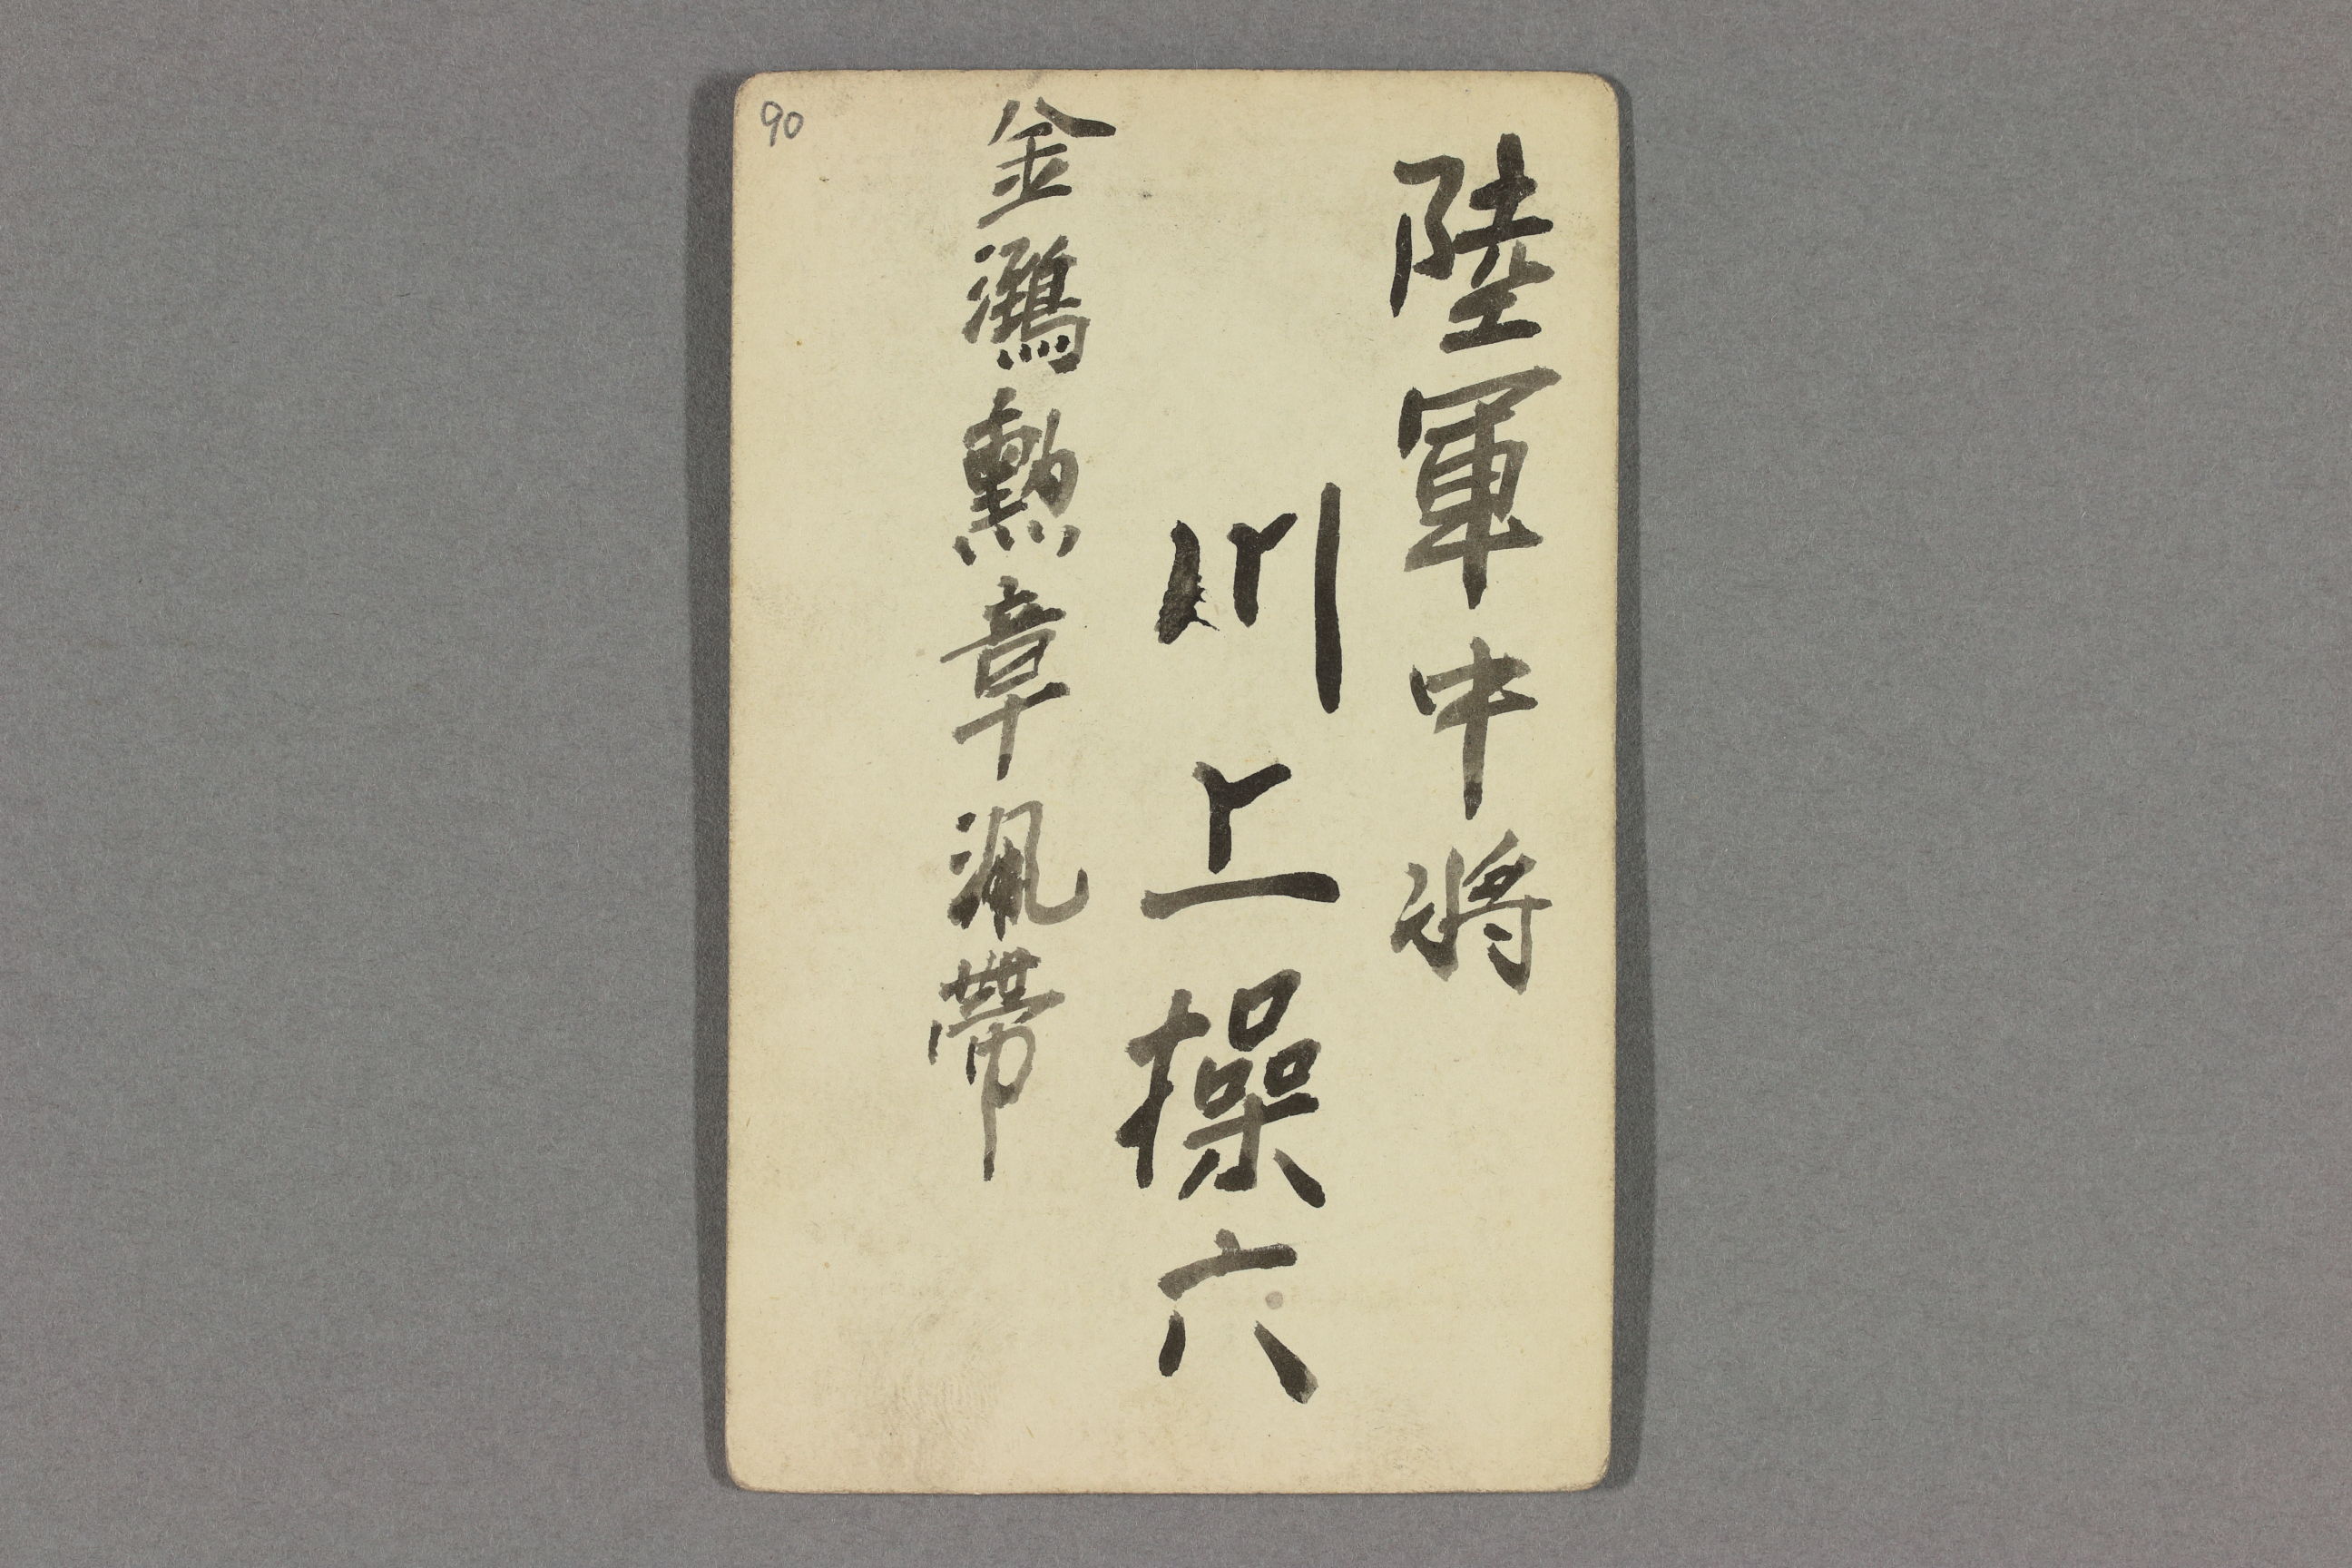 90
陸軍中将
川上操六
金鵄勲章佩帶